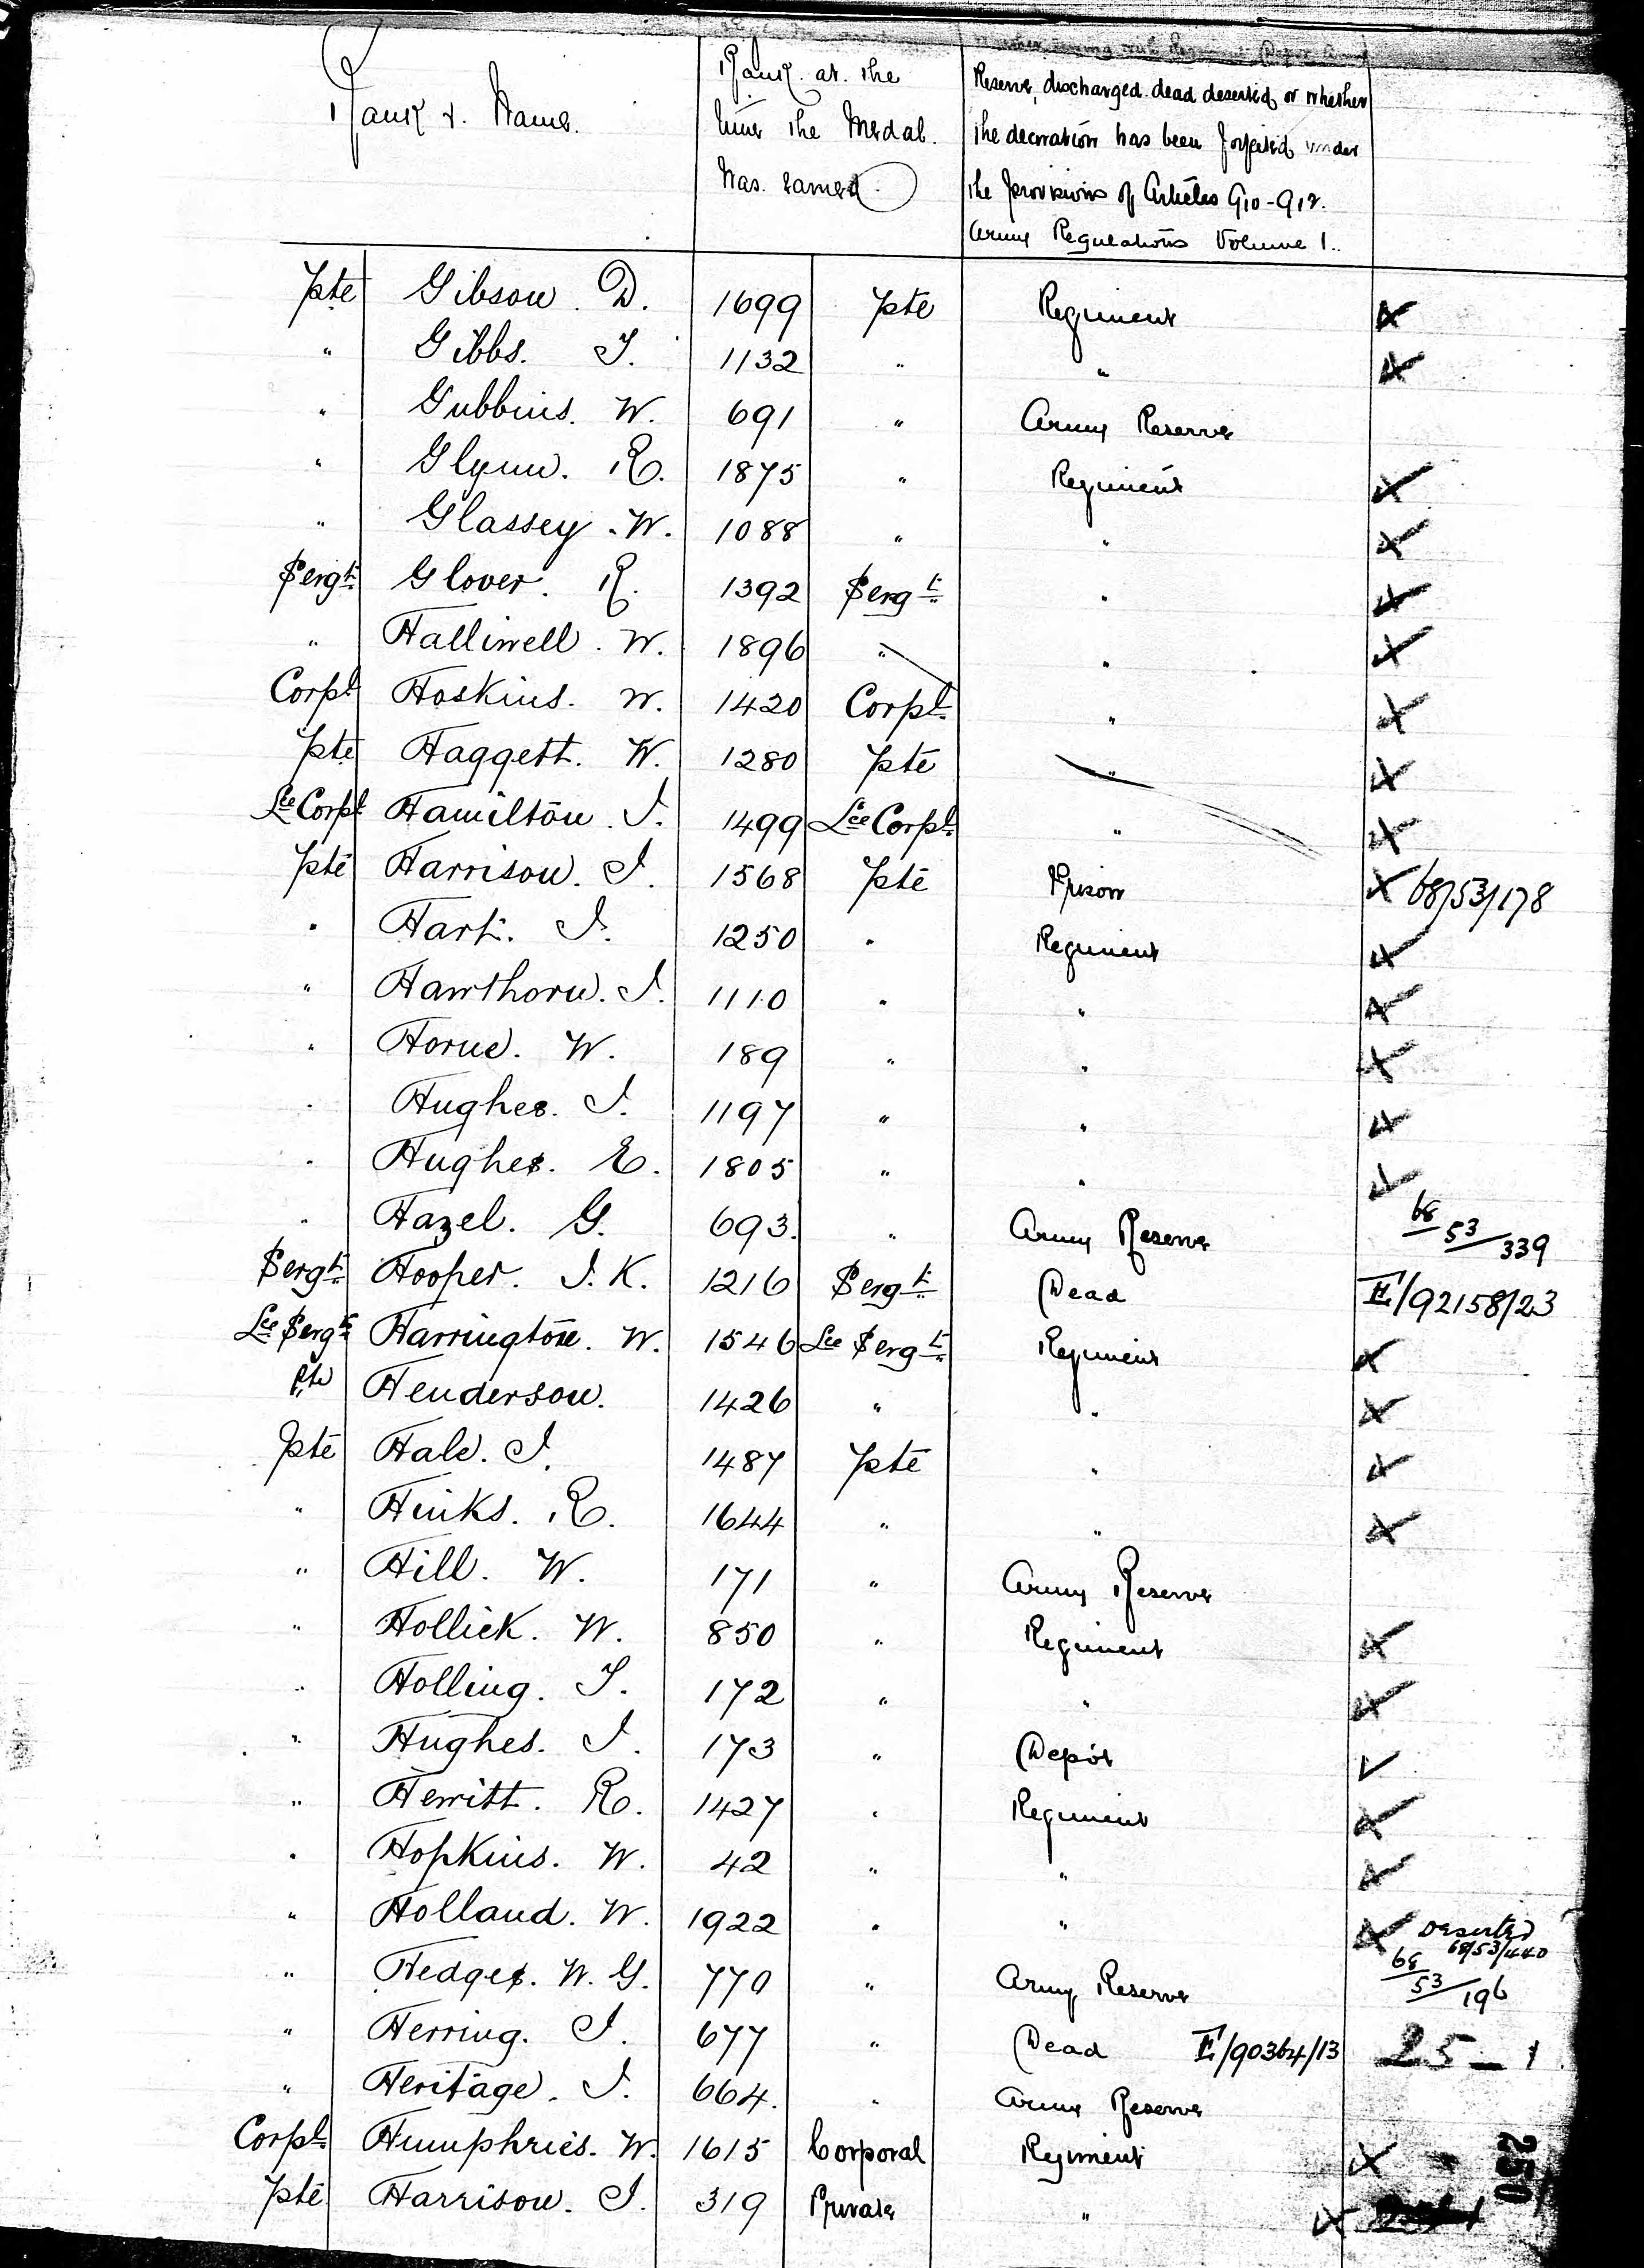 Rank & Name.
Rank at the time the Medal was earned
Reserve, discharged dead deserted or whether the decoration has been forfeited under the provisions of Articles 910-912. Army Regulations Volume 1.
Pte Gibson. D. 1699 Pte Regiment
" Gibbs. T. 1132 " "
" Gubbins. W. 691 " Army Reserve
" Glynn. R. 1875 " Regiment
" Glassey. W. 1088 " "
Sergt Glover. R. 1392 Sergt "
" Halliwell. W. 1896 " "
Corpl Hoskins. W. 1420 Corpl "
Pte Haggett. W. 1280 Pte "
Lce Corpl Hamilton. J. 1499 Lce Corpl "
Pte Harrison. J. 1568 Pte Prison 68/53/178
" Hart. J. 1250 " Regiment
" Hawthorn. J. 1110 " "
" Horne. W. 189 " "
" Hughes. J. 1197 " "
" Hughes. E. 1805 " "
" Hazel. G. 693. " Army Reserve 68/53/339
Sergt Hooper. J. K. 1216 Sergt Dead E/92158/23
Lce Sergt Harrington. W. 1546 Lce Sergt Regiment
Pte Henderson. 1426 " "
Pte Hale. J. 1487 Pte "
" Hinks. R. 1644 " "
" Hill. W. 171 " Army Reserve
" Hollick. W. 850 " Regiment
" Holling. T. 172 " "
" Hughes. J. 173 " Depôt
" Hewitt. R. 1427 " Regiment
" Hopkins. W. 42 " "
" Holland. W. 1922 " " Deserted 68/53/440
" Hedges. W. G. 770 " Army Reserve 68/53/196
" Herring. J. 677 " Dead E/90364/13 25 - 1
" Heritage. J. 664. " Army Reserve
Corpl Humphries. W. 1615 Corporal Regiment
Pte Harrison. J. 319 Private "
250